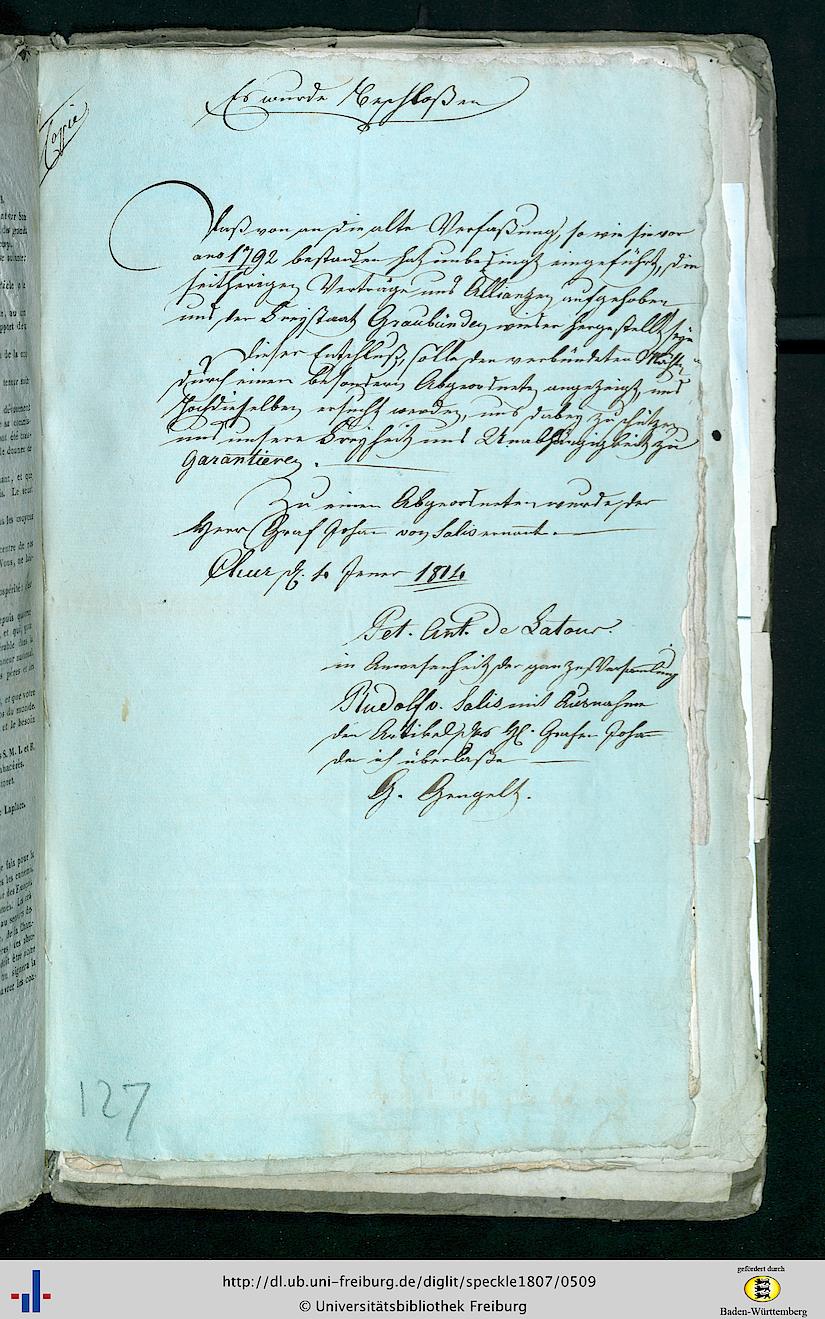 Copie
Es wurde Beschloßen
Daß von an die alte Verfaßung, so wie sie vor
ano 1792 bestanden hat unbedingt eingeführt, die
seitherigen Verträge und Allianzen aufgehoben
und der Freystaat Graubünden wieder hergestellt seye
Dieser Entschluß, solle den verbündeten Mächten
durch einen besondern Abgeordneten angezeigt und
Hochdieselben ersucht werden, uns dabey zu schützen
und unsere Freyheit und Unabhängigkeit zu
garantieren.
Zu einen Abgeordneten wurde, der
Herr Graf Johann von Salis ernannt.
Chur d. 4 Jener 1814
Pet. Ant. de Latour.
in Anwesenheit der ganzen Versammlung
Rudolf v. Salis mit Ausnahme
den Artikel des H. Grafen Johann
den ich überlaße
G. Gengel.
127
http://dl.ub.uni-freiburg.de/diglit/speckle1807/0509
© Universitätsbibliothek Freiburg
gefördert durch
Baden-Württemberg